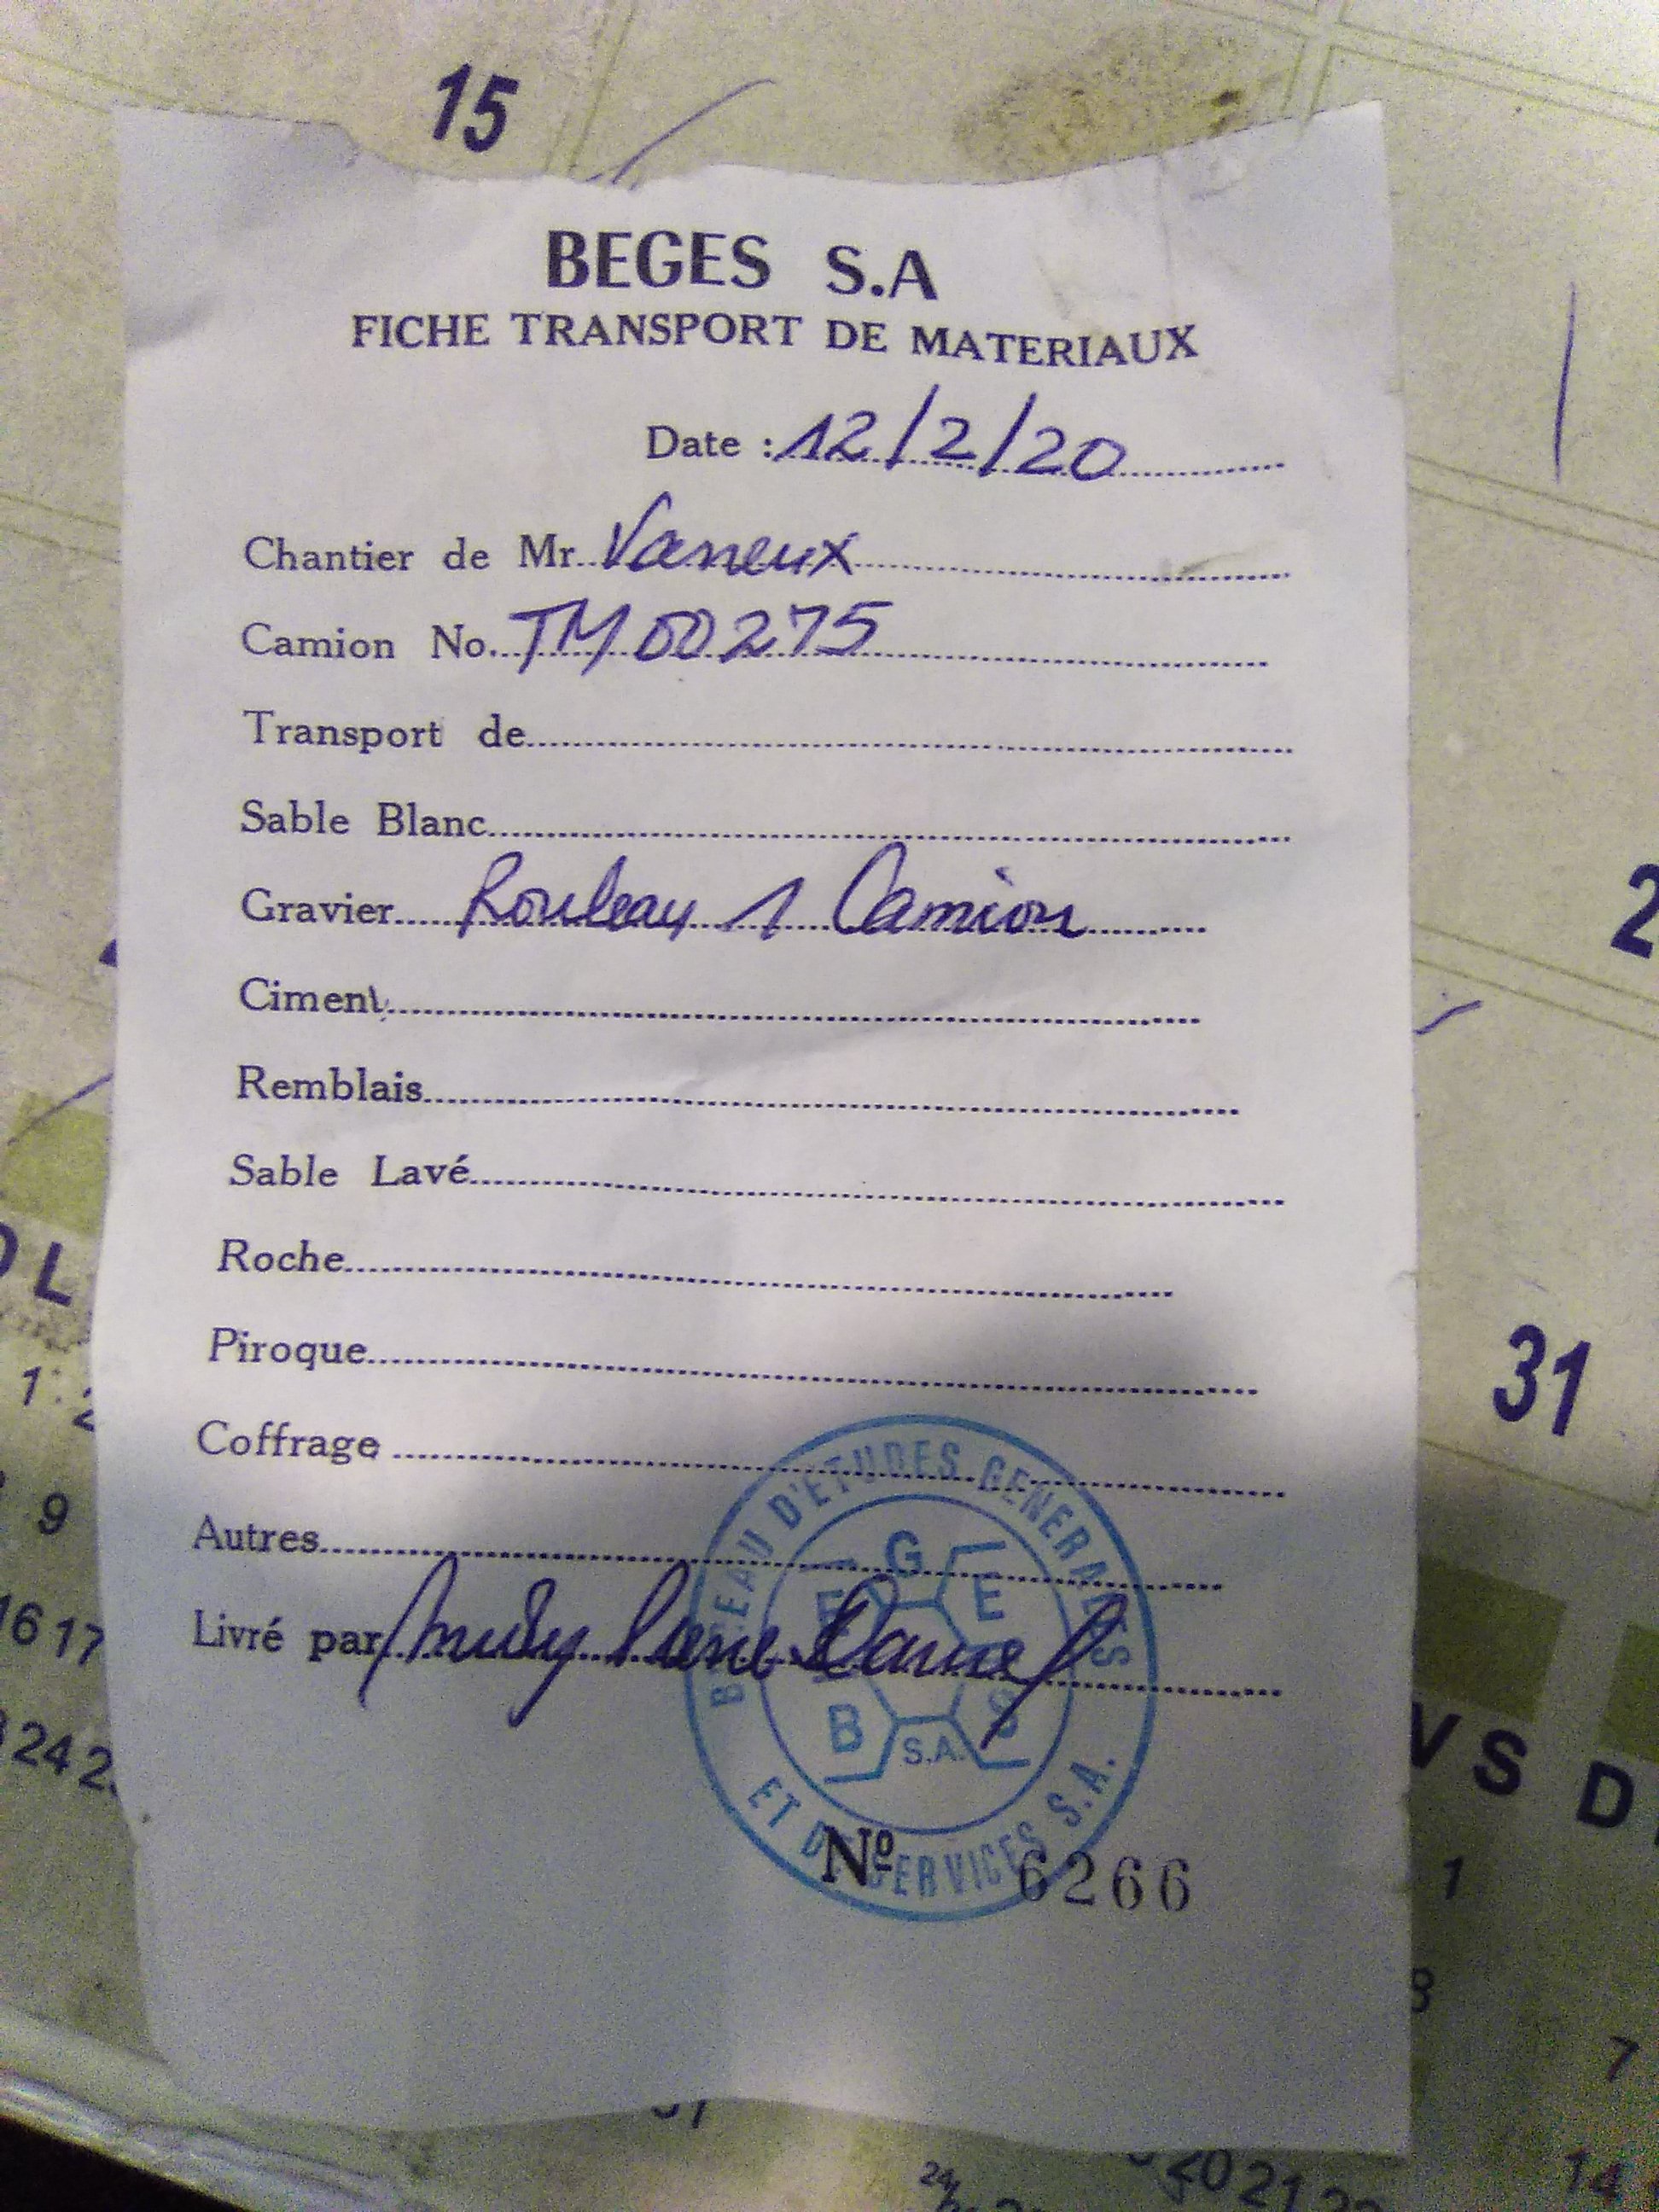 15
BEGES S.A
FICHE TRANSPORT DE MATERIAUX
Date : 12/2/20
Chantier de Mr. Vaneux
Camion No. TM00275
Transport de
Sable Blanc
Gravier Rouleau 1 Camion
2
Ciment
Remblais
Sable Lavé
Roche
Piroque
31
Coffrage
Autres
Livré par
BUREAU D'ETUDES GENERALES
ET DE SERVICES S.A.
B E G E S
S.A.
Nº 6266
L
1 2
9
16 17
24 2
V S D
1
8
7
14
20 21 22
24